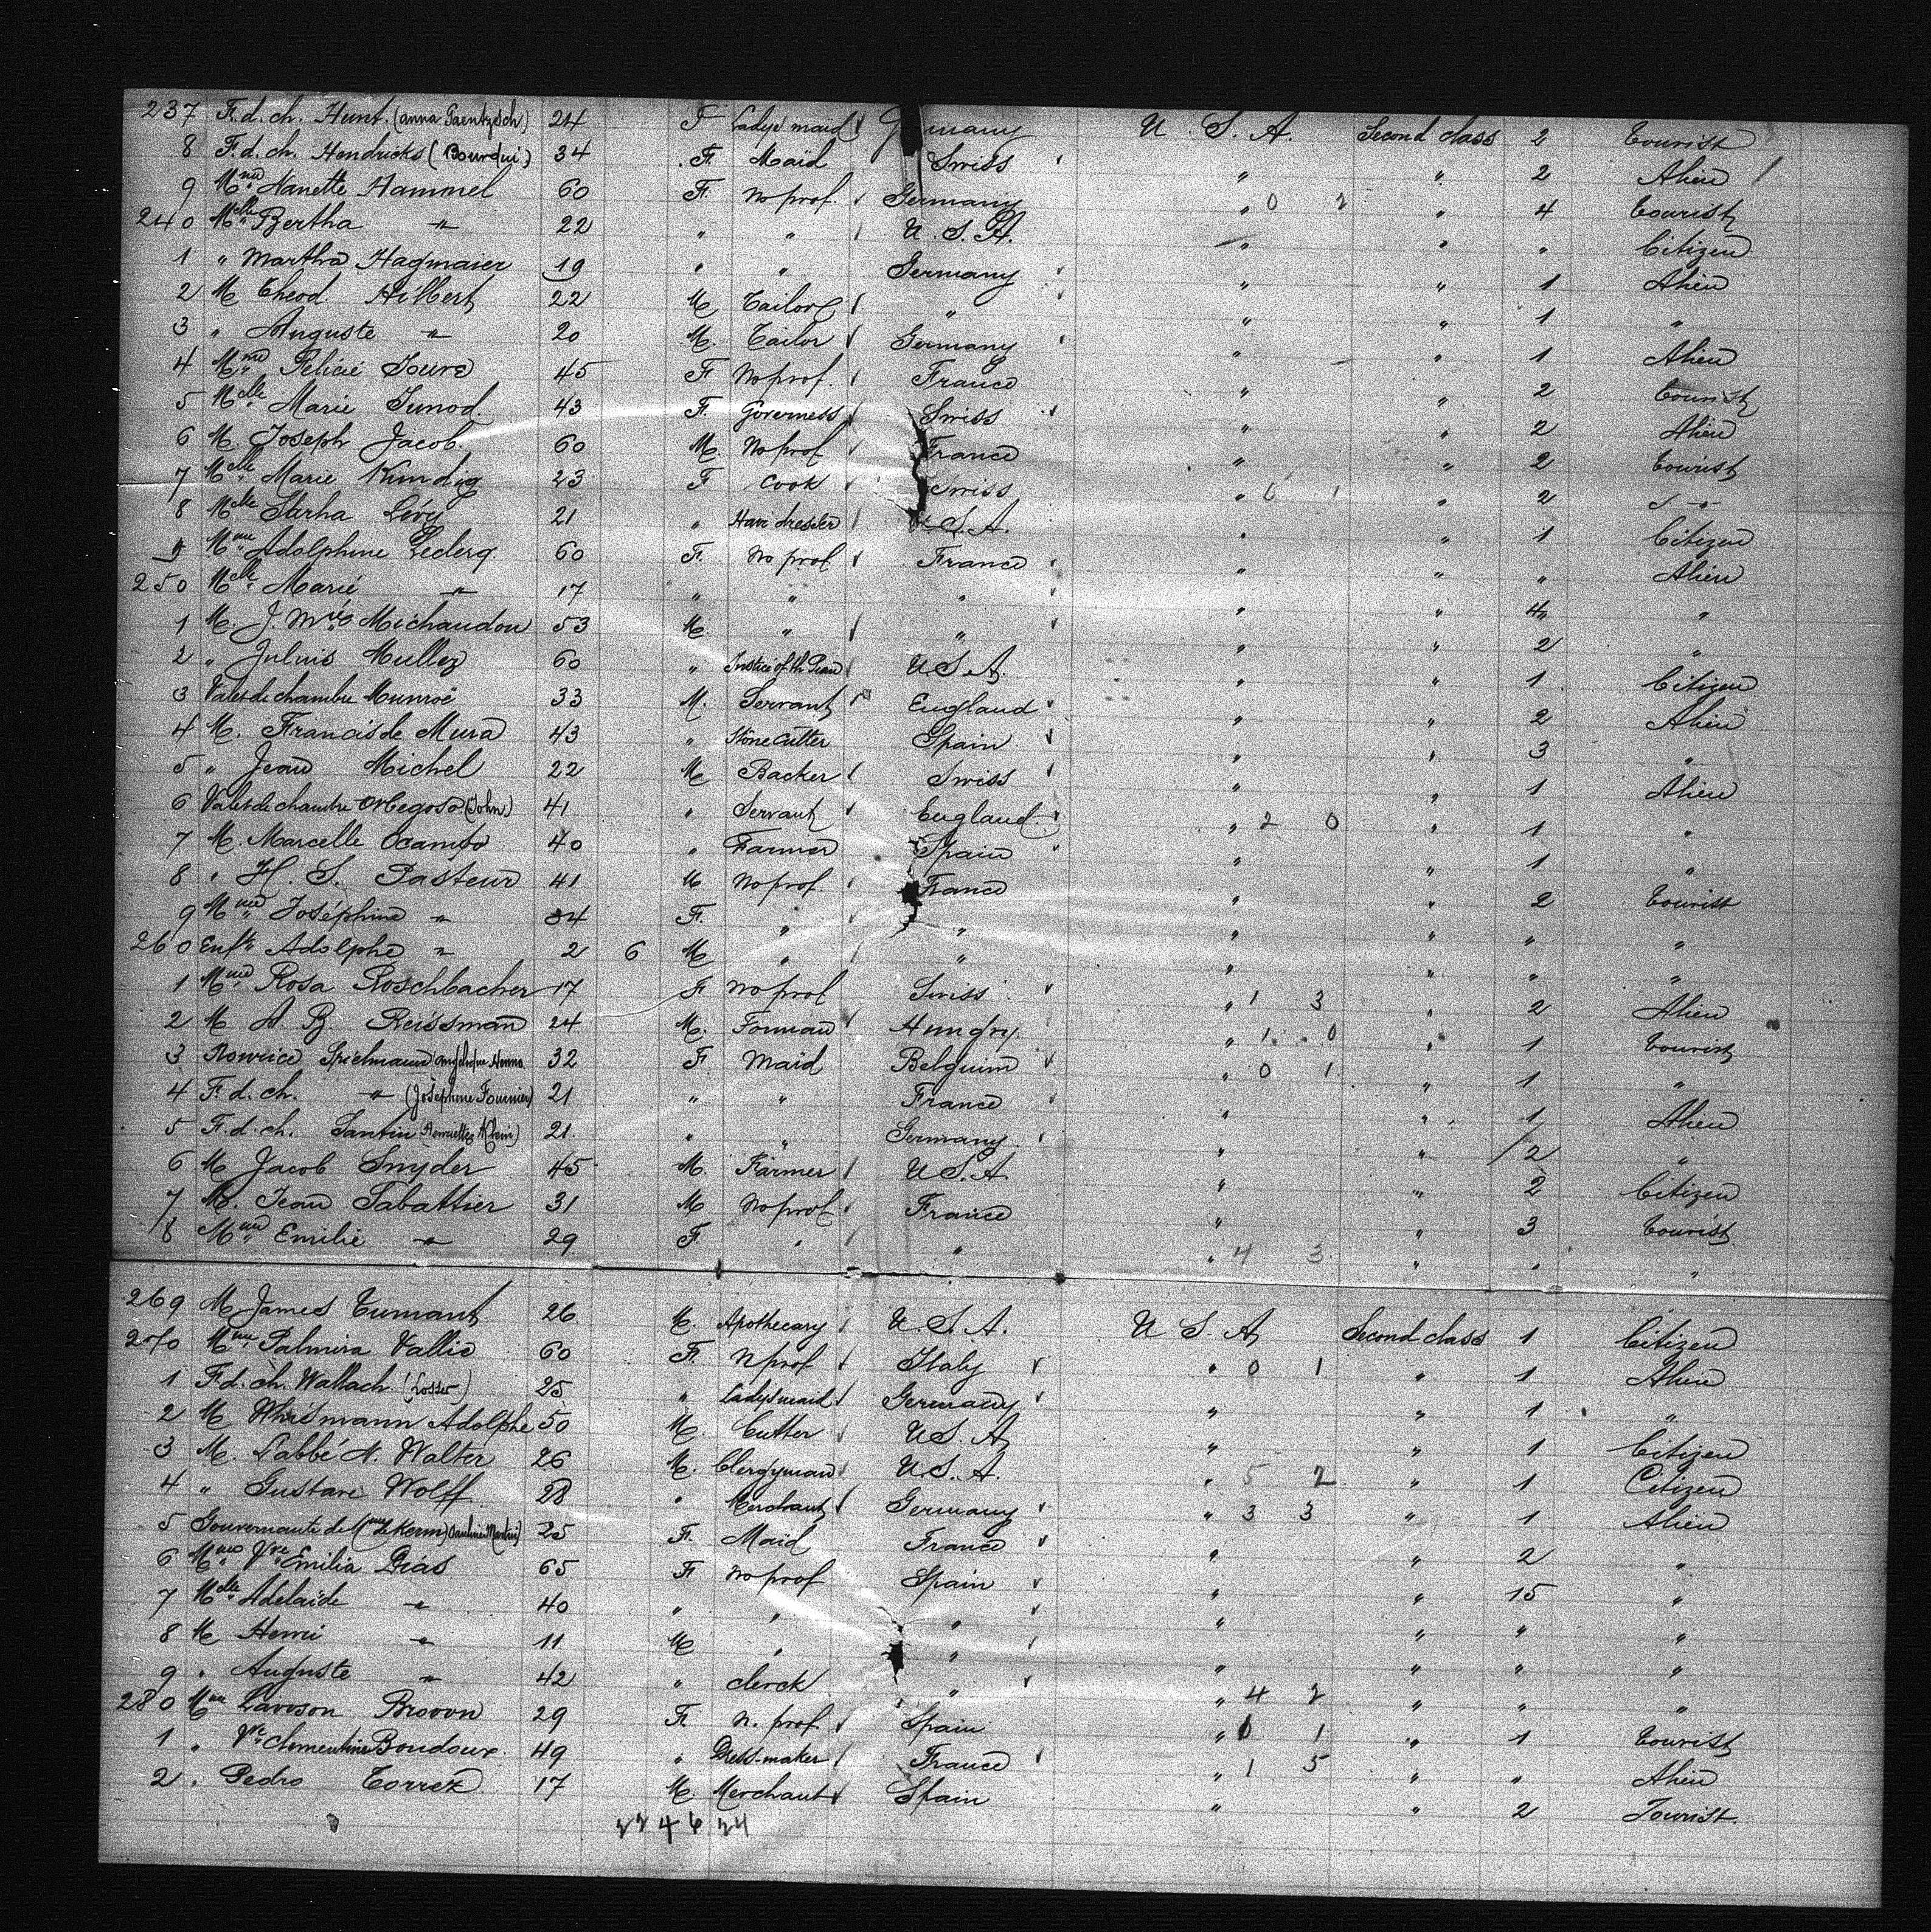 237 F. d. ch. Hunt. (Anna Gaentzsch) 24 F Ladys maid Germany U. S. A. Second class 2 Tourist
8 F. d. ch. Hendricks (Bourdui) 34 F. Maid Swiss " " 2 Alien
9 Mme Nanette Hammel 60 F. No prof. Germany " 0 2 " 4 Tourist
240 Melle Bertha " 22 " " U. S. A. " " " Citizen
1 " Martha Hagmaier 19 " " Germany " " 1 Alien
2 M Theod. Hilbert 22 M Tailor " " " 1 "
3 " Auguste " 20 M. Tailor Germany " " 1 Alien
4 Mme Félicie 45 F No prof. France " " 2 Tourist
5 Melle Marie Junod. 43 F. Governess Swiss " " 2 Alien
6 M. Joseph Jacob. 60 M. No prof France " " 2 Tourist
7 Melle Marie Kundig 23 F Cook Swiss " 0 1 " 2
8 Melle Sarha Lévy 21 " Hair dresser U. S. A. " " 1 Citizen
9 Mme Adolphine Leclerq 60 F. No prof France " " " Alien
250 Melle Marie " 17 " " " " " 4 "
1 M. J. Michaudou 53 M. " " " " 2 "
2 " Juluis Muller 60 " Justice of th Peau U. S. A. " " 1 Citizen
3 Valet de chambre Munroë 33 M. Servant England " " 2 Alien
4 M. Francis de Mura 43 " Stone Cutter Spain " " 3 "
5 " Jean Michel 22 M Backer Swiss " " 1 Alien
6 Valet de chambre Orbegoso (John) 41 " Servant England " 2 0 " 1 "
7 M. Marcelle Ocampo 40 " Farmer Spain " " 1 "
8 " H. S. Pasteur 41 M No prof France " " 2 Tourist
9 Mme Joséphine " 34 F. " " " " " "
260 Enft Adolphe " 2 6 M " " " " " "
1 Mme Rosa Roschbacher 17 F No prof Swiss " 1 3 " 2 Alien
2 M A. B. Reissman 24 M. Hungry. " 1 0 " 1 Tourist
3 Spielmann 32 F Maid Belguim " 0 1 " 1 "
4 F. d. ch. " (Joséphine Fournier) 21 " " France " " 1 Alien
5 F. d. ch. Santin 21. " " Germany " " 2 "
6 M Jacob Snyder 45 M. Farmer U. S. A. " " 2 Citizen
7 M. Jean Sabattier 31 M No prof France " " 3 Tourist
8 Mme Emilie " 29 F. " " " 4 3 " " "
269 M James Tumant 26. M. Apothecary U. S. A. U S. A. Second class 1 Citizen
270 Mme Palmira Vallie 60 F. N prof Italy " 0 1 " 1 Alien
1 F. d. ch. Wallach (Losser) 25 " Ladys maid Germany " " 1 "
2 M Whismann Adolphe 50 M. Cutter U. S. A. " " 1 Citizen
3 M. L'abbé A. Walter 26 M. Clergyman U. S. A. " 5 2 " 1 Citizen
4 " Gustave Wolff 28 " Merchant Germany " 3 3 " 1 Alien
5 Gouvernante de 25 F. Maid France " " 2 "
6 Mme Vve Emilia Dias 65 F No prof Spain " " 15 "
7 Melle Adelaïde " 40 " " " " " " "
8 M Henri " 11 M " " " " " "
9 " Auguste " 42 " clerck " " 4 2 " " "
280 Mme Lawson Broovn 29 F. N. prof Spain " 0 1 " 1 Tourist
1 " Vve Clementine Boudoux. 49 " Dress-maker France " 1 5 " " Alien
2 " Pedro Torrez 17 M. Merchant Spain " " 2 Tourist.
22 4 6 24